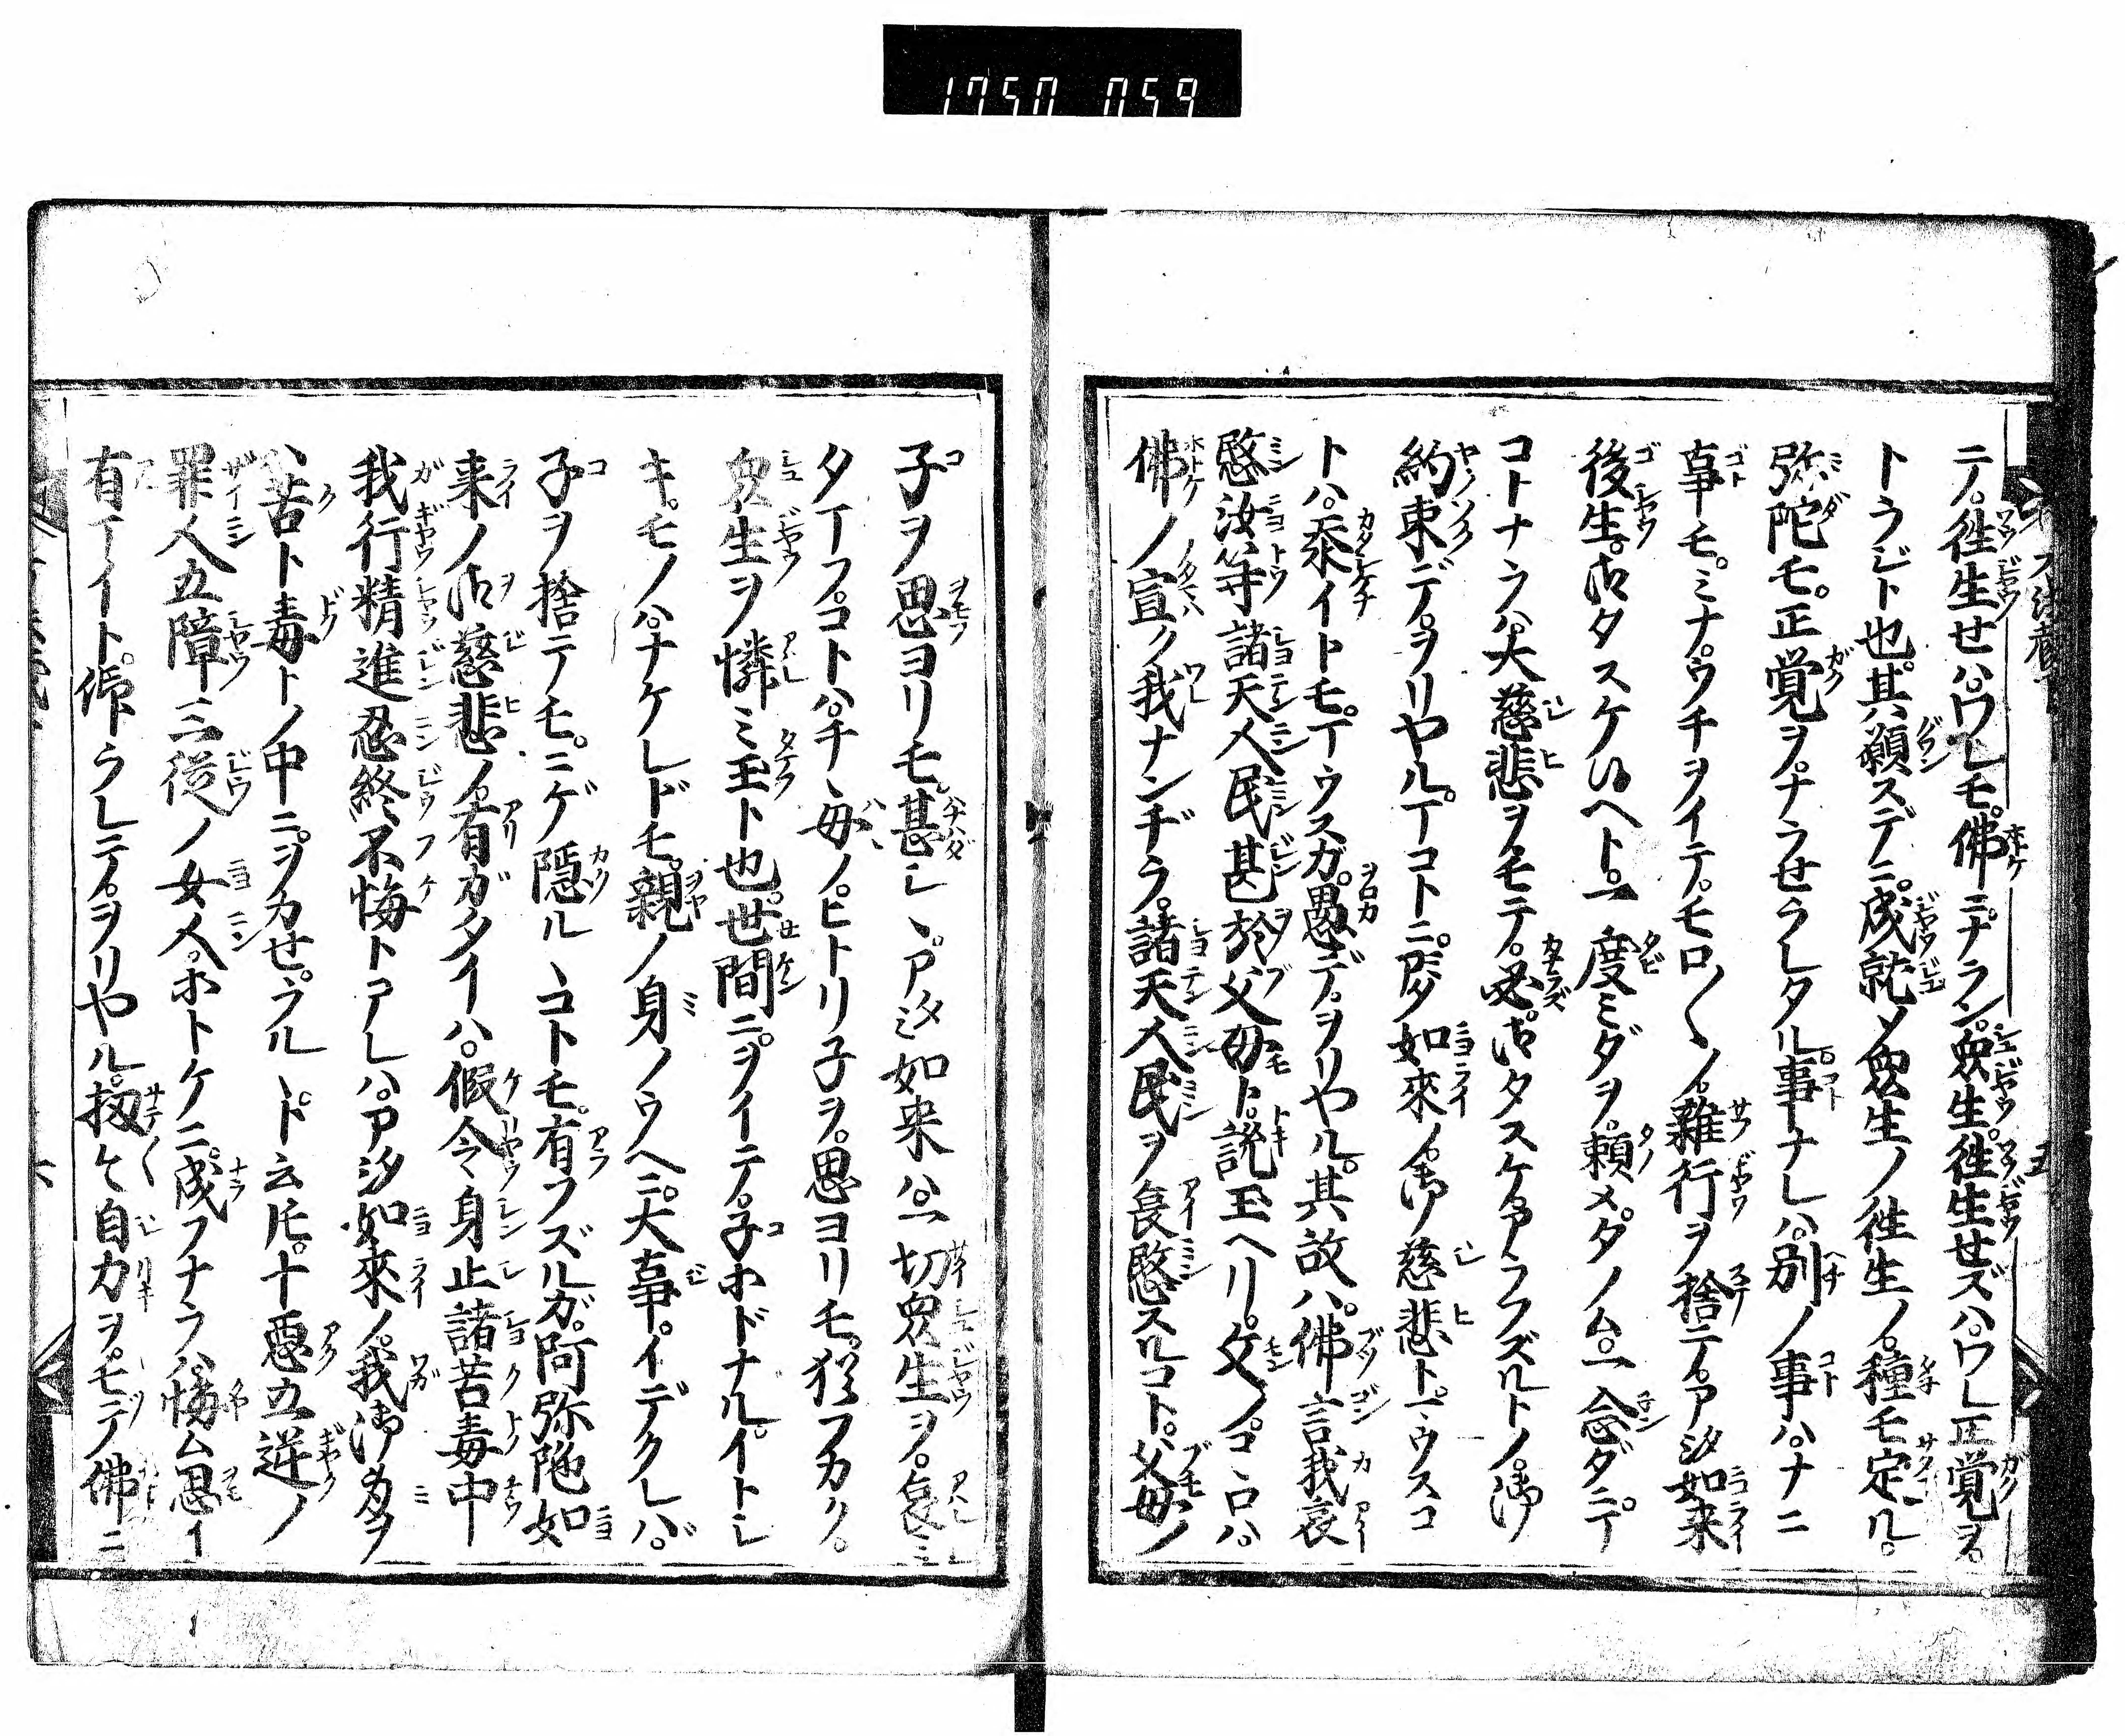 1750 059
テ。徃生せハ。ワレモ。佛ニナラン。衆生。徃生せズハ。ワレ正覚ヲ。
トラジト也。其願スデニ。成就〆衆生ノ徃生ノ。種モ定ル。
弥陀モ。正覚ヲ。ナラせラレタル。事ナレハ。別ノ事ハ。ナニ
事モ。ミナ。ウチヲイテ。モロ〱ノ。雜行ヲ捨テ。アミタ如来
後生。御タスケ候ヘト。一度ミダヲ。頼メ。タノム。一念ダニ。
コトナラハ。大慈悲ヲモテ。必。御タスケアラフズルトノ。御
約束デ。ヲリヤル。コトニ。如來ノ。御慈悲ト。ウスコ
トハ。忝イトモ。ウスガ。愚デ。ヲリヤル。其故ハ。佛言我哀
愍汝等諸天人民甚於父母ト。説玉ヘリ。文ノ。コヽロハ。
佛ノ宣ク我ナンヂラ。諸天人民ヲ哀愍スルコト。父母ノ
子ヲ思ヨリモ。甚シヽ。アミタ如来ハ。一切衆生ヲ。哀ミ
タフ。コトハ。チヽ母ノ。ヒトリ子ヲ。思ヨリモ。猶フカク。
衆生ヲ憐ミ玉ト也。世間ニ。ヲイテ。子ホドナル。イトシ
キ。モノハ。ナケレドモ。親ノ身ノウヘニ。大事。イデクレバ。
子ヲ捨テモ。ニゲ隠ルヽコトモ。有フズルガ。阿弥陁如
来ノ御慈悲ノ。有ガタイハ。假令身止諸苦毒中
我行精進忍終不悔トアレハ。アミタ如來ノ。我御身ヲ
ハ苦ト毒トノ中ニ。ヲカせ。ラルヽト云氏。十惡五逆ノ
罪人五障三従ノ女人。ホトケニ。成フナラハ。悔ム思イ
有イト。仰ラレテ。ヲリヤル。扨〱自力ヲ。モテ佛ニ
六